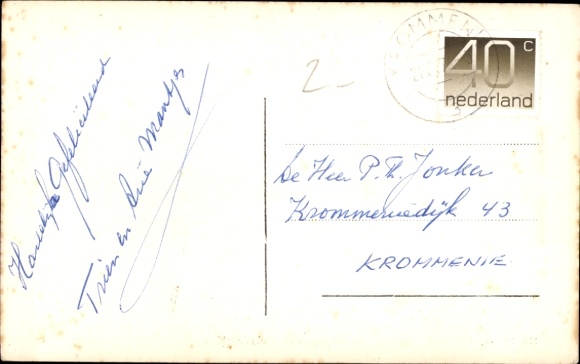 Hartelijk Gefeliciteerd
Trien en Arie Mantje
2-
KROMMENIE
40 c
nederland
De Heer P. Th. Jonker
Krommeniedijk 43
KROMMENIE